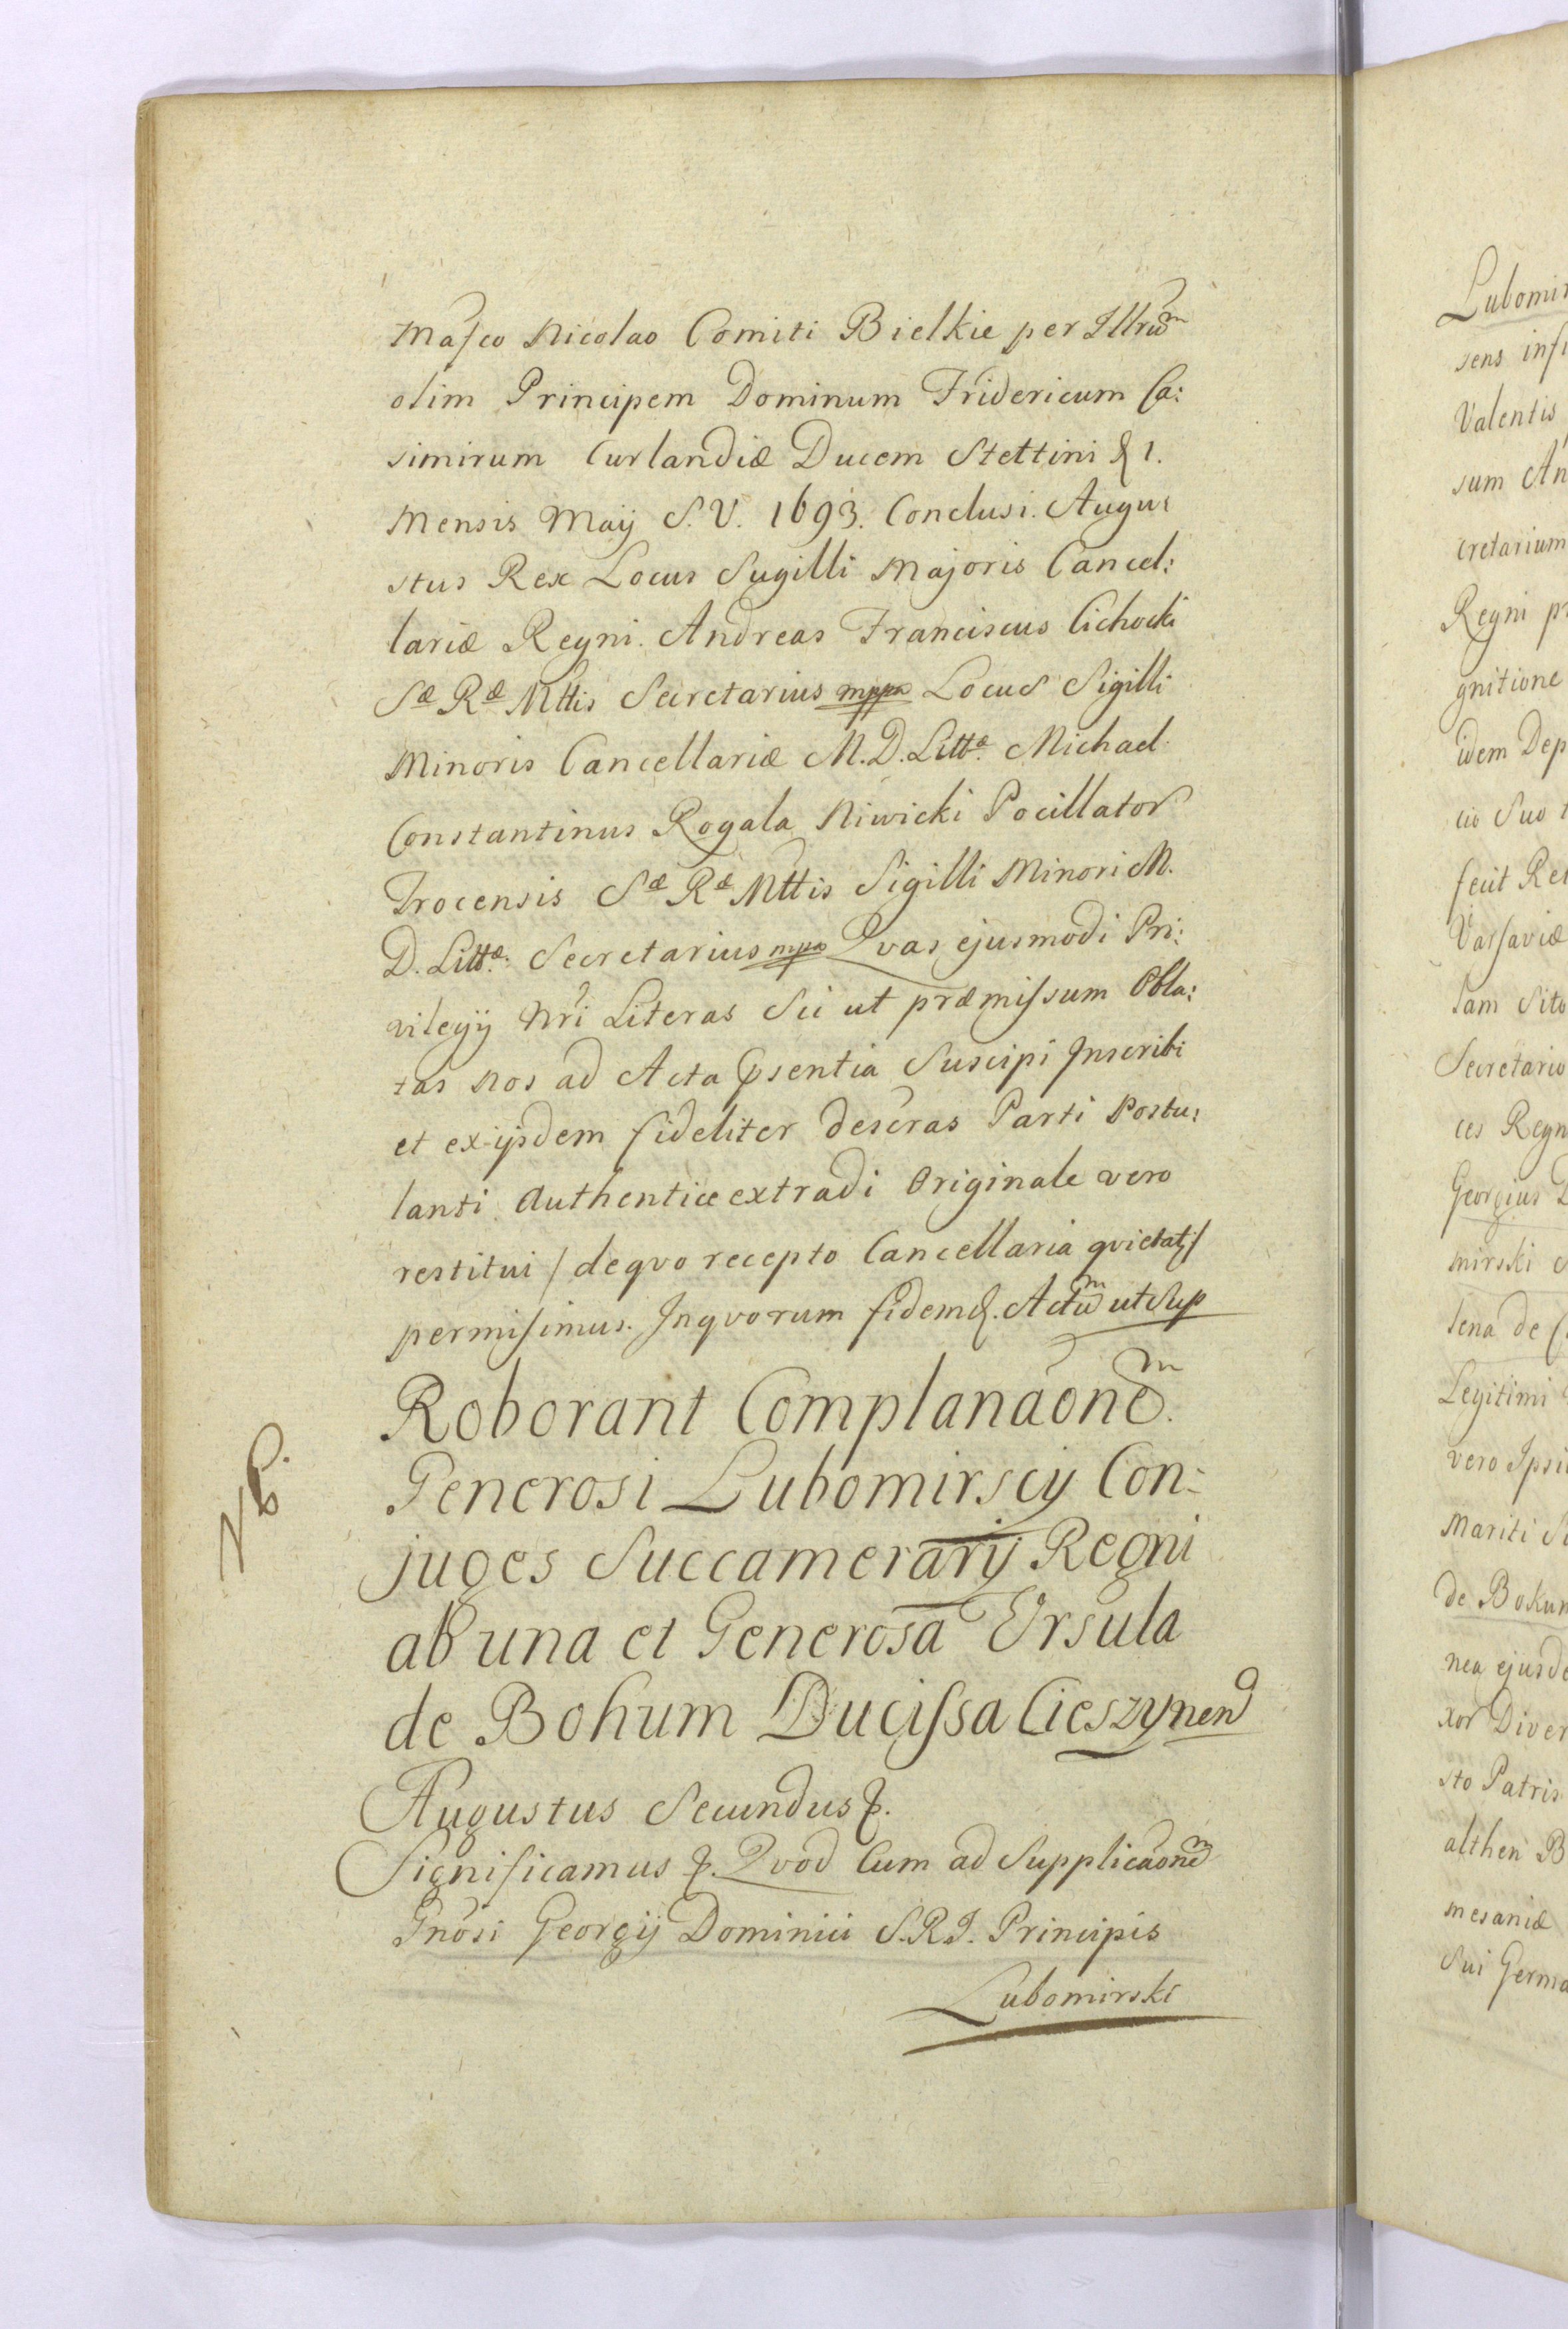 Masco Nicolao Comiti Bielkie per Illrũm
olim Principem Dominum Fridericum Ca:
simirum Curlandiæ Ducem Stettini & 1.
Mensis Maij S.V. 1693. Conclusi. Augu:
stus Rex Locus Sugilli Majoris Cancel:
lariæ Regni. Andreas Franciscus Cichocki
Sæ Ræ Mttis Secretarius mppa Locus Sigilli
Minoris Cancellariæ M.D. Littæ. Michael
Constantinus Rogala Niwicki Pocillator
Trocensis Sæ Ræ Mttis Sigilli Minori M.
D. Littæ. Secretarius mpa Qvas ejusmodi Pri:
vilegij Nri Literas Sic ut præmissum Obla:
tas nos ad Acta Psentia Suscipi Inscribi
et ex ijsdem fideliter descras Parti Postu:
lanti Authentice extradi Originale vero
restitui / de qvo recepto Cancellaria qvietat /
permisimus. In qvorum fidem &. Actũm ut Sup
Roborant Complanaõnem.
Generosi Lubomirscy Con:
juges Succamerarij Regni
ab una et Generosa Ursula
de Bohum Ducissa Cieszynen
NB.
Augustus Secundus &.
Significamus &. Qvod Cum ad Supplicaõnem
Gnõsi Georgij Dominici S.R.I. Principis
Lubomirski
Lubomir
sens inf
Valentis
sum An
cretarium
Regni p
gnitione
idem Dep
cio Suo
fecit Re
Varsaviæ
tam Sito
Secretario
ces Regn
Georgius D
mirski
lena de
Legitimi
vero Ipsi
Mariti
de Bokum
nea ejusde
xor Diver
sto Patris
althen B
mesaniæ
Sui Germa